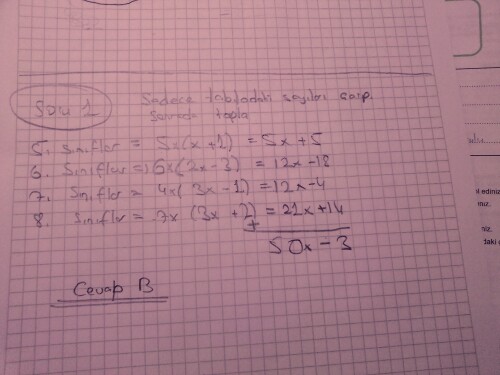 Soru 1 Sadece tablodaki sayıları çarp.
sonra da topla
5. sınıflar = 5x(x+1) = 5x+5
6. sınıflar = 6x(2x-3) = 12x-18
7. sınıflar = 4x(3x-1) = 12x-4
8. sınıflar = 7x(3x+2) = 21x+14
+
50x-3
Cevap B